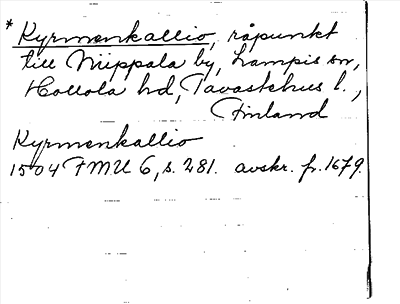 * Kyrmenkallio, råpunkt
till Miippala by, Lampis sn,
Hollola hd, Tavastehus l.,
Finland
Kyrmenkallio
1504 FMU 6, s. 281. avskr. fr. 1679.